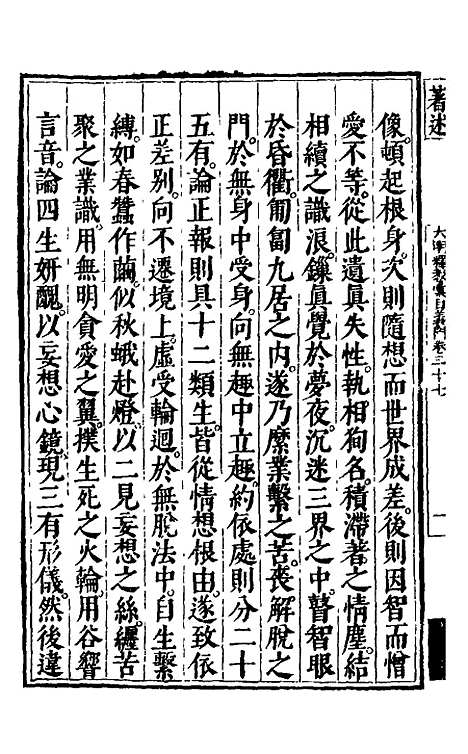 著述
大明釋教彙目義門卷三十七
一
像頓起根身次則隨想而世界成差後則因智而憎
愛不等從此遺真失性執相狥名積滯著之情塵結
相續之識浪鏁真覺於夢夜沉迷三界之中瞽智眼
於昏衢匍匐九居之内遂乃縻業繫之苦喪解脫之
門於無身中受身向無趣中立趣約依處則分二十
五有論正報則具十二類生皆從情想根由遂致依
正差別向不遷境上虛受輪迴於無脫法中自生繫
縛如春蠶作繭似秋蛾赴燈以二見妄想之絲纏苦
聚之業識用無明貪愛之翼撲生死之火輪用谷響
言音論四生妍醜以妄想心鏡現三有形儀然後違